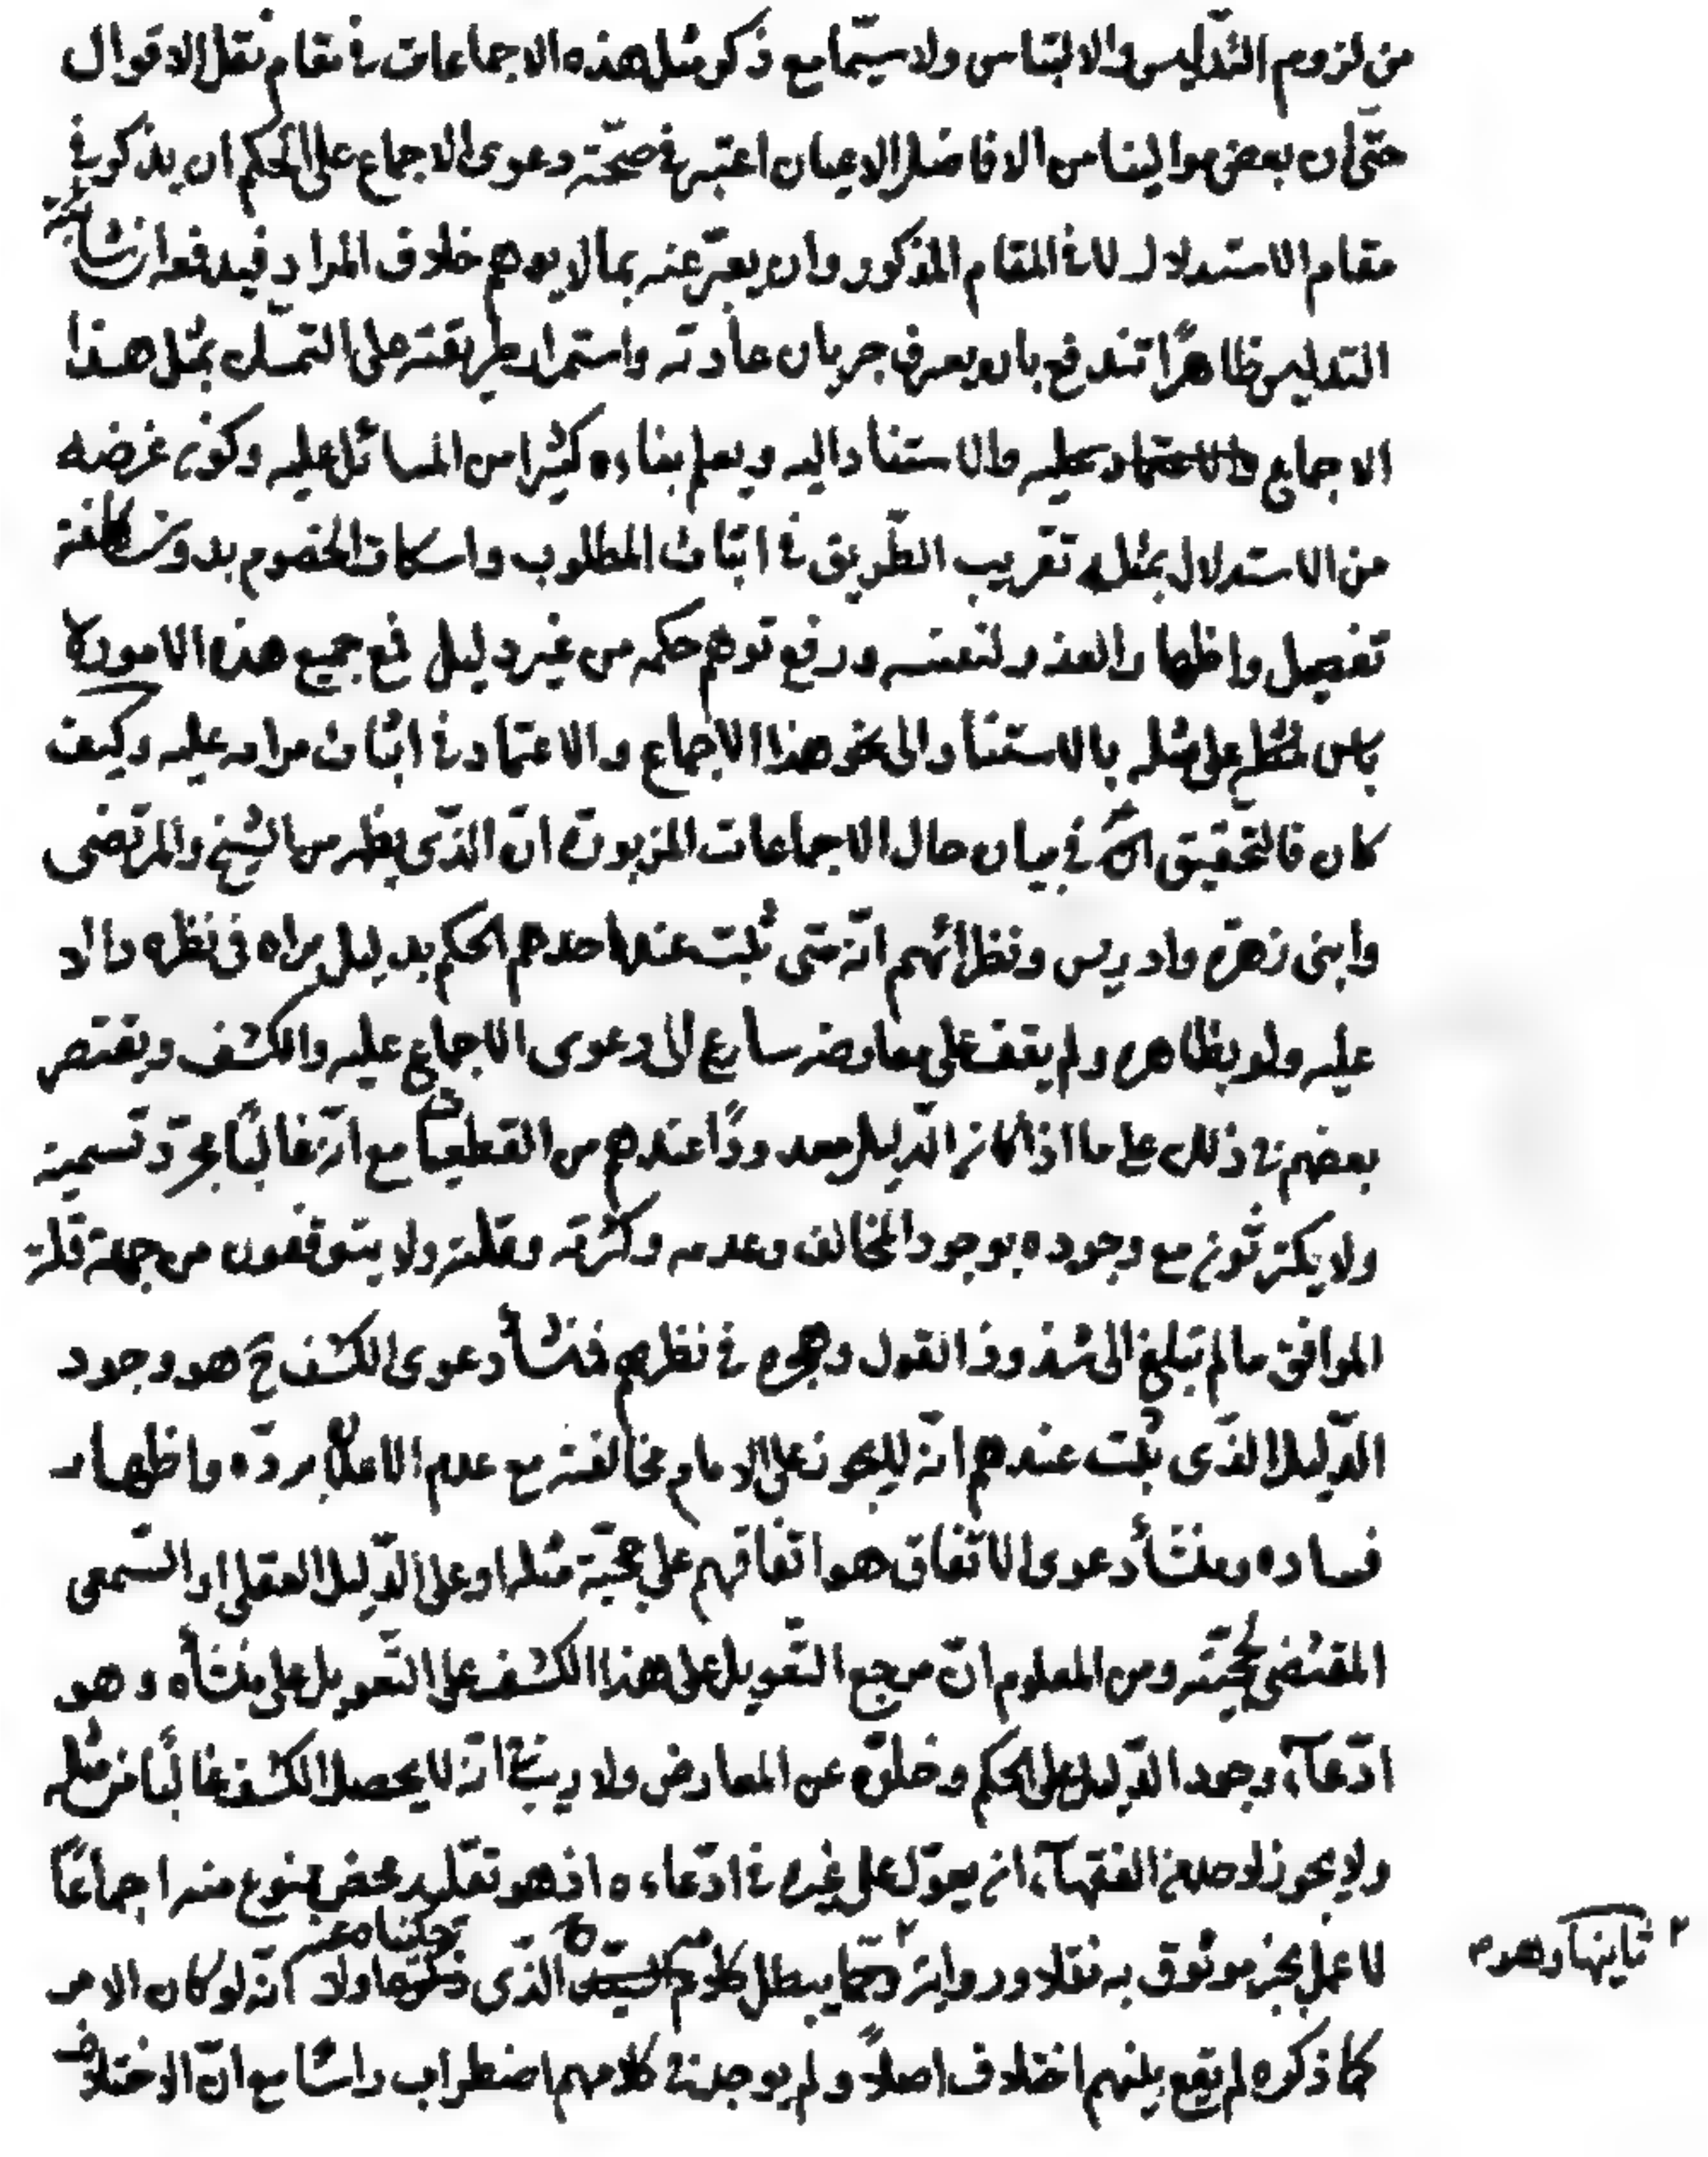 من لزوم التّدليس والالتباس ولا سيّما مع ذكر مثل هذه الاجماعات في مقام نقل الاقوال
حتّى ان بعض موالينا من الافاضل الاعيان اعتبر في صحّة دعوى الاجماع على الحكم ان يذكر في
مقام الاستدلال لا في المقام المذكور وان يعبّر عنه بما لا يوهم خلاف المراد فيدفعه ان شائبة
التدليس ظاهرًا تندفع بان يعرف جريان عادته واستمرار طريقته على التمسّك بمثل هذا
الاجماع والاعتماد عليه والاستناد اليه ويعلم بناءه كثيرا من المسائل عليه وكون غرضه
من الاستدلال بمثله تقريب الطّريق في اثبات المطلوب واسكات الخصوم بدون كلفة
تفصيل واظهار العذر لنفسه ورفع توهم حكمه من غير دليل فمع جميع هذه الامور لا
باس على مثله بالاستناد الى نحو هذا الاجماع والاعتماد في اثبات مراده عليه وكيف
كان فالتّحقيق في بيان حال الاجماعات المزبورة انّ الذّي يظهر من الشيخ والمرتضى
وابنى زهرة وادريس ونظرائهم انّه متى ثبت عند احدهم الحكم بدليل يراه في نظره دالا
عليه ولو بظاهره ولم يقف على معارضه سارع الى دعوى الاجماع عليه والكشف ويقتصر
بعضهم في ذلك على ما اذا كان الدّليل معدودًا عندهم من القطعيات مع انّه غالبًا بمجرّد تسمية
ولا يكترثون مع وجوده بوجود المخالف وعدمه وكثرته وقلته ولا يتوقفون من جهة قلة
الموافق ما لم تبلغ الى شذوذ القول وهجره في نظرهم فمنشأ دعوى الكشف ح هو وجود
الدّليل الذّى ثبت عندهم انّه لا يجوز على الامام مخالفته مع عدم الاعلام بردّه واظهار
فساده ومنشأ دعوى الاتّفاق هو اتّفاقهم على حجّيّة مثله او على الدّليل العقلي او السّمعى
المقتضى لحجّيّته ومن المعلوم انّ مرجع التّعويل على هذا الكشف على التّعويل على منشأه وهو
ادّعآء وجود الدّليل على الحكم وخلوّه عن المعارض ولا ريب في انّه لا يحصل الكشف غالبًا من مثله
ولا يجوز لاحد من الفقهآء ان يعوّل على غيره في ادّعاءه اذ هو تقليد محض ممنوع منه اجماعًا
لا عمل بخبر موثوق به نقلا ورواية وممّا يبطل كلام الذّى حكيناه عنه انّه لو كان الامر
كما ذكره لم يقع بينهم اختلاف اصلاً ولم يوجد في كلامهم اضطراب راسًا مع انّ الاختلاف
٢ ثانيها وهدم